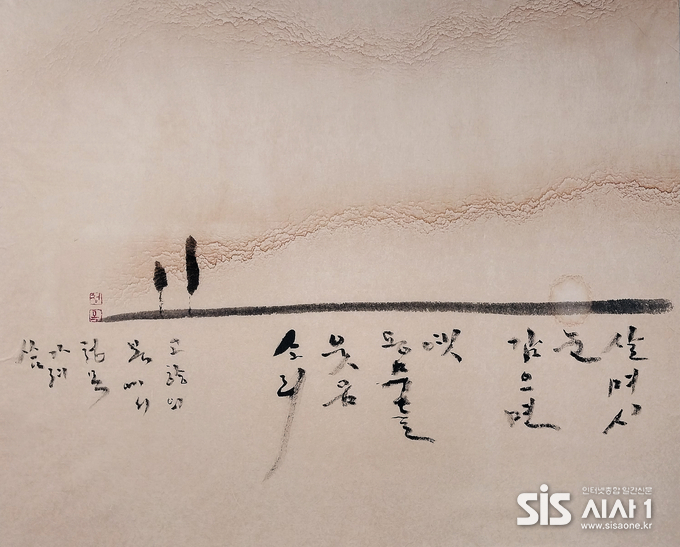 살며시
눈
감으면
옛
동무들
웃음
소리
고향의
봄에서
가려
씀
인터넷종합 일간신문
SIS 시사1
www.sisaone.kr